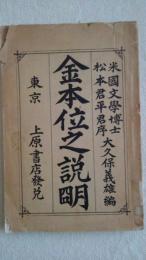 米國文學博士
松本君平君序
大久保義雄編
金本位之説明
東京
上原書店發兌